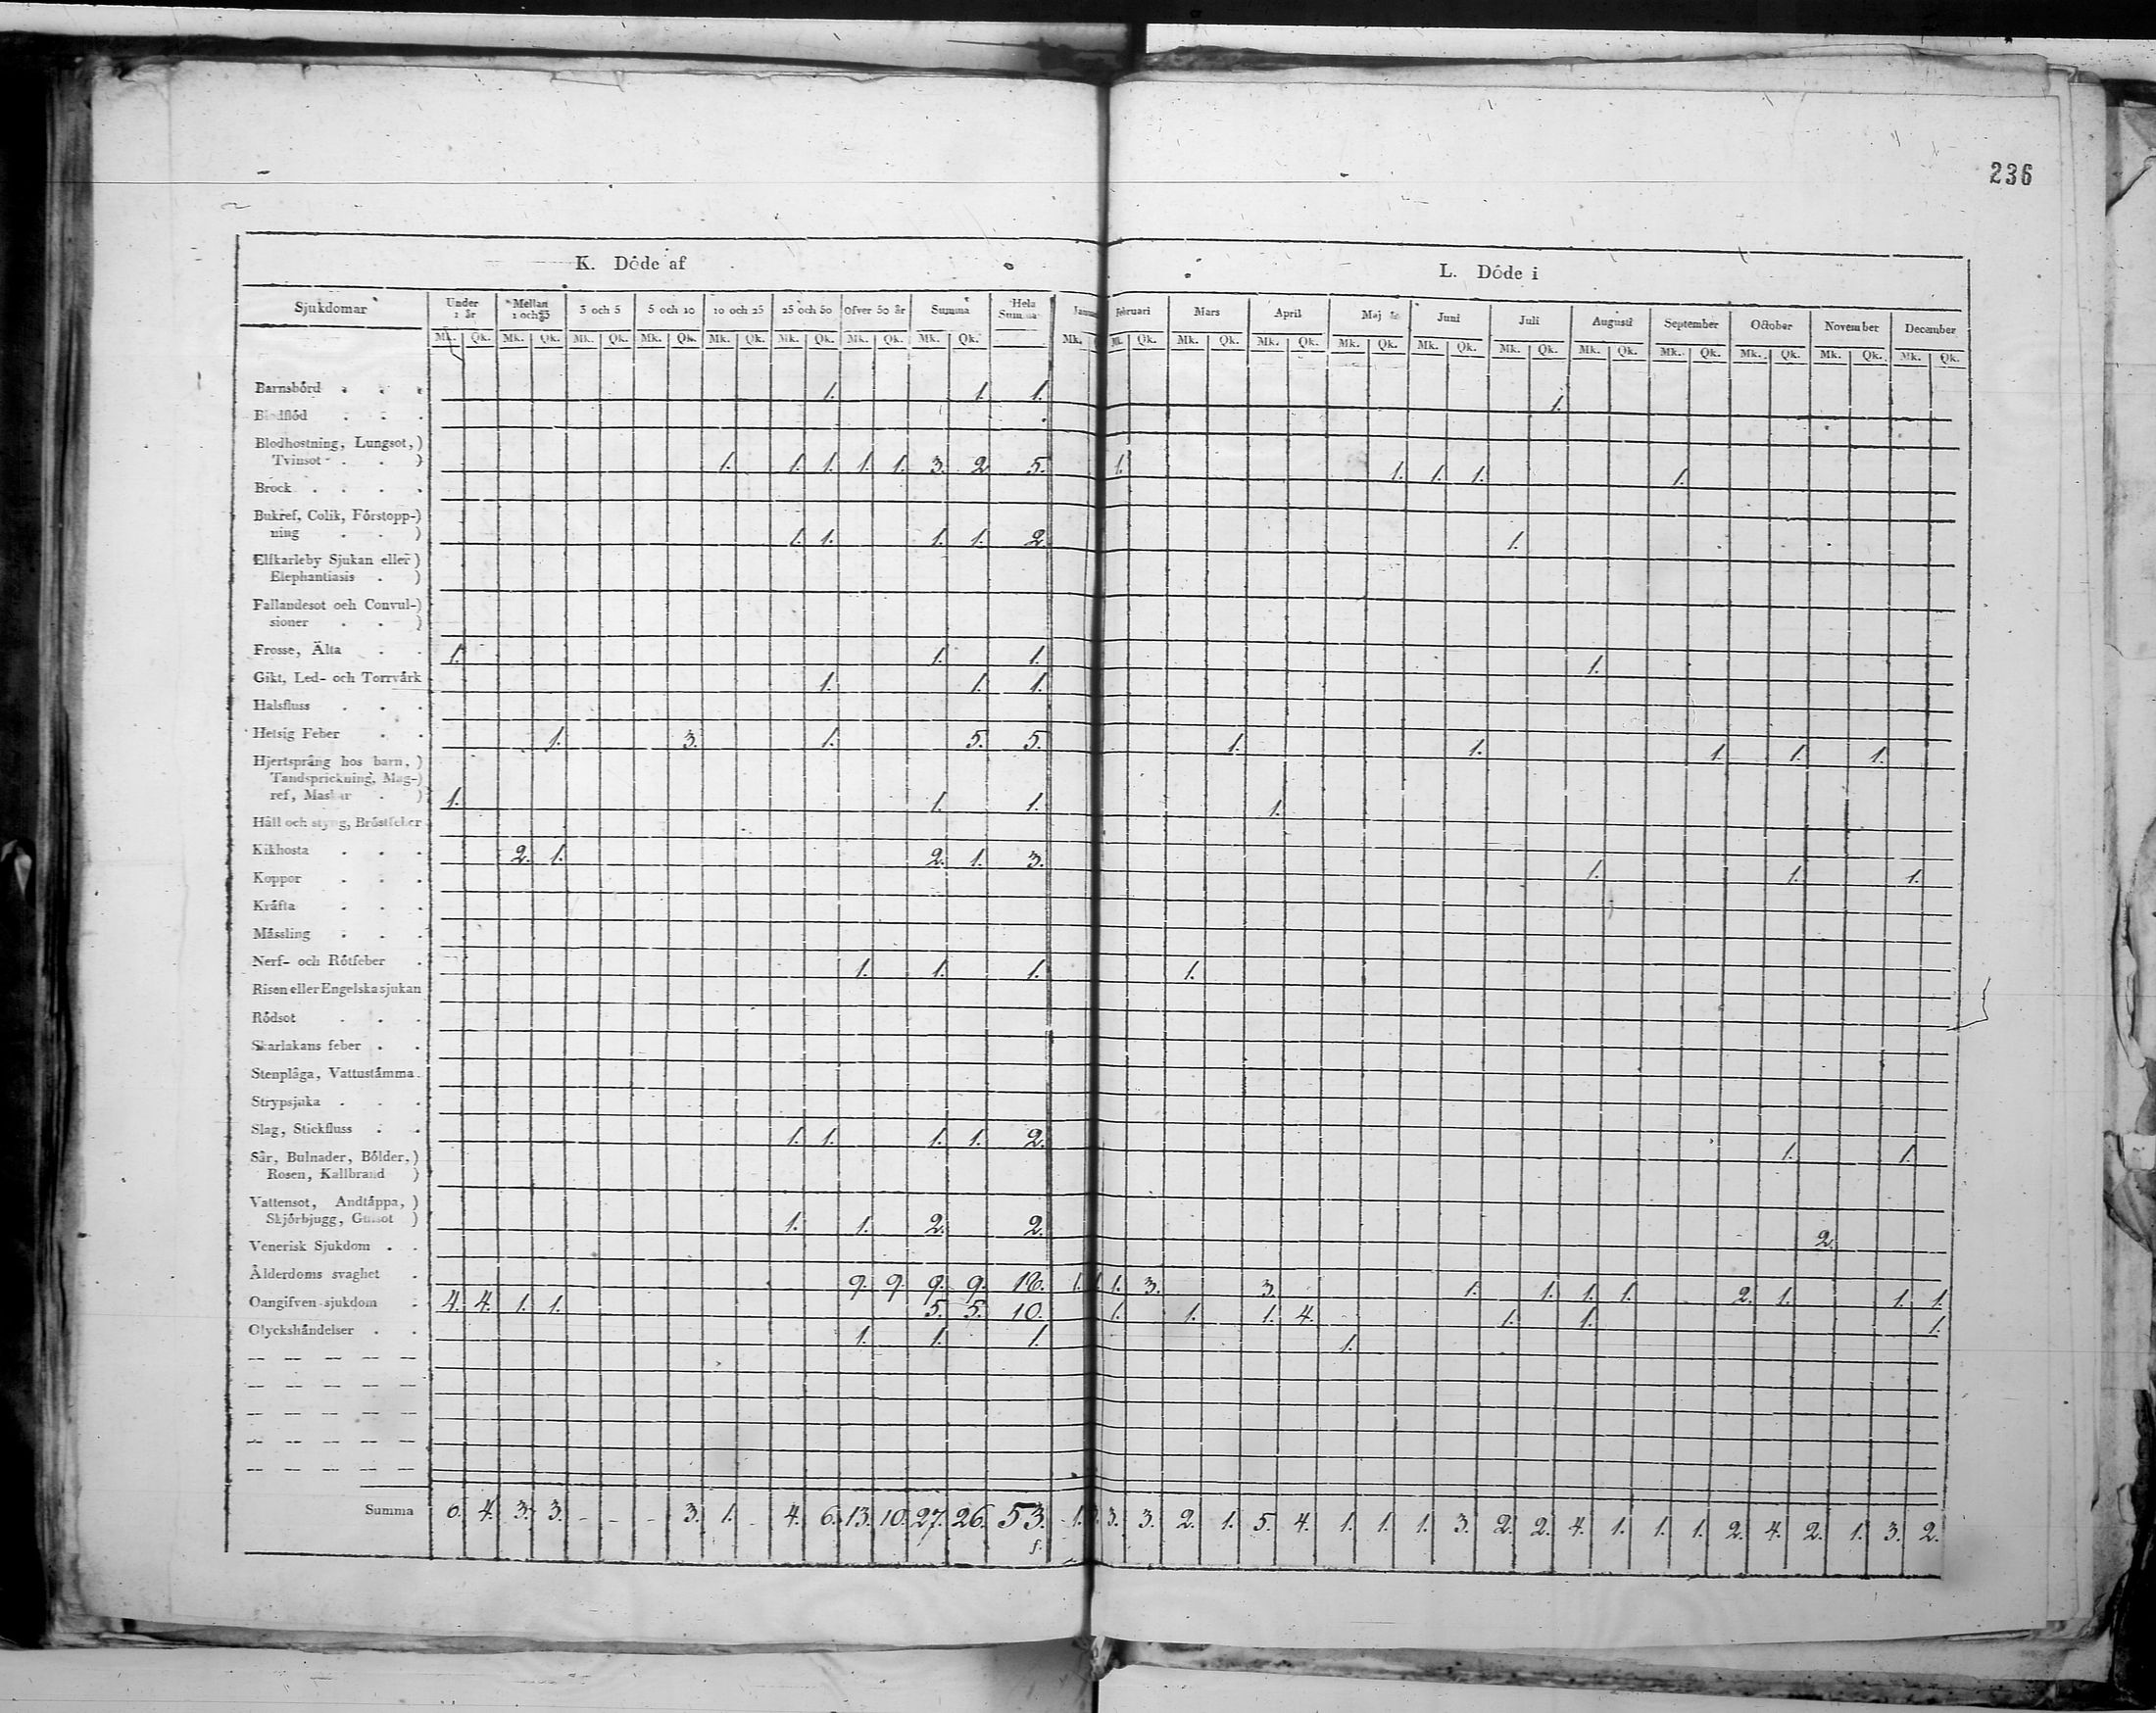 236
K. Döde af
L. Döde i
Sjukdomar Under 1 år Mellan 1 och 3 3 och 5 5 och 10 10 och 25 25 och 50 Öfver 50 år Summa Hela Summa Februari Mars April Maj Juni Juli Augusti September October November December
Mk. Qk. Mk. Qk. Mk. Qk. Mk. Qk. Mk. Qk. Mk. Qk. Mk. Qk. Mk. Qk. Mk. Mk. Qk. Mk. Qk. Mk. Qk. Mk. Qk. Mk. Qk. Mk. Qk. Mk. Qk. Mk. Qk. Mk. Qk. Mk. Qk. Mk. Qk.
Barnsbörd . . . 1. 1. 1. 1.
Blodflöd . . .
Blodhostning, Lungsot, )
Tvinsot . . ) 1. 1. 1. 1. 1. 3. 2. 5. 1. 1. 1. 1. 1.
Brock . . . .
Bukref, Colik, Förstopp-)
ning . . ) 1. 1. 1. 1. 2. 1.
Elfkarleby Sjukan eller )
Elephantiasis . )
Fallandesot och Convul-)
sioner . . )
Frosse, Älta . . 1. 1. 1. 1.
Gikt, Led- och Torrvärk 1. 1. 1.
Halsfluss . . .
Hetsig Feber . . 1. 3. 1. 5. 5. 1. 1. 1. 1. 1.
Hjertsprång hos barn, )
Tandsprickning, Mag-)
ref, Maskar . ) 1. 1. 1. 1.
Håll och styng, Bröstfeber
Kikhosta . . . 2. 1. 2. 1. 3. 1. 1. 1.
Koppor . . .
Kräfta . . .
Mässling . . .
Nerf- och Rötfeber . 1. 1. 1. 1.
Risen eller Engelska sjukan
Rödsot . . .
Skarlakans feber . .
Stenplåga, Vattustämma .
Strypsjuka . . .
Slag, Stickfluss . . 1. 1. 1. 1. 2. 1. 1.
Sår, Bulnader, Bölder, )
Rosen, Kallbrand )
Vattensot, Andtäppa, )
Skjörbjugg, Gulsot ) 1. 1. 2. 2. 2.
Venerisk Sjukdom . .
Ålderdoms svaghet . 9. 9. 9. 9. 18. 1. 1. 1. 3. 3. 1. 1. 1. 1. 2. 1. 1. 1.
Oangifven sjukdom . 4. 4. 1. 1. 5. 5. 10. 1. 1. 1. 4. 1. 1. 1.
Olyckshändelser . . 1. 1. 1. 1.
— — — — —
— — — — —
— — — — —
— — — — —
— — — — —
Summa 6. 4. 3. 3. - - - 3. 1. - 4. 6. 13. 10. 27. 26. 53. 1. 3. 3. 2. 1. 5. 4. 1. 1. 1. 3. 2. 2. 4. 1. 1. 1. 2. 4. 2. 1. 3. 2.